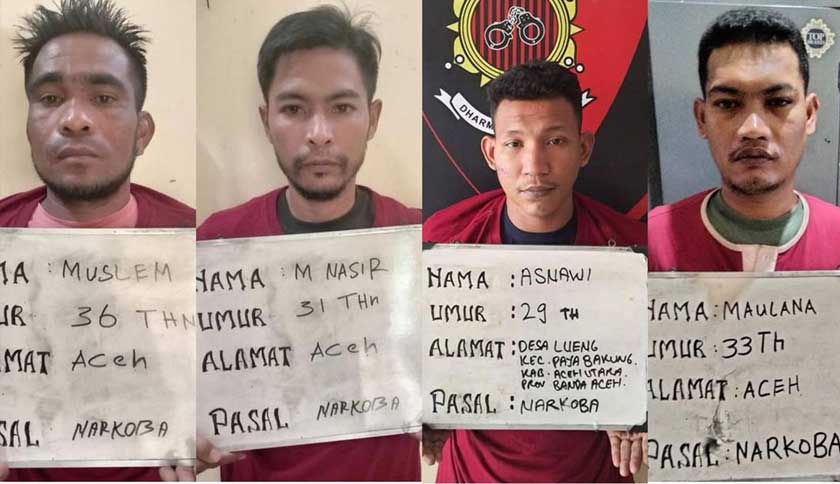 MA : MUSLEM
UR 36 THN
AMAT Aceh
SAL NARKOBA
NAMA : M NASIR
UMUR 31 THn
ALAMAT Aceh
PASAL NARKOBA
DHARM
NAMA : ASNAWI
UMUR : 29 TH
ALAMAT : DESA LUENG
KEC. PAYA BAKUNG.
KAB. ACEH UTARA.
PROV BANDA ACEH.
PASAL : NARKOBA
TOP
NAMA : MAULANA
UMUR : 33 Th
ALAMAT : ACEH
PASAL : NARKOBA